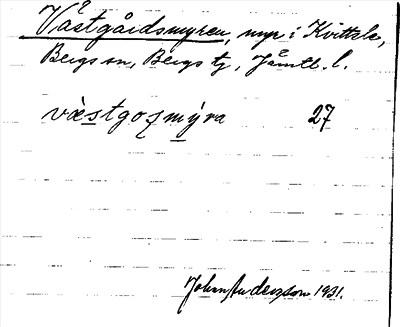 Våstgårdsmyren, myr i Kvittsle,
Bergs sn, Bergs tg, Jämtl. l.
västgoʃmýra 27
Johan Anderzon 1931.